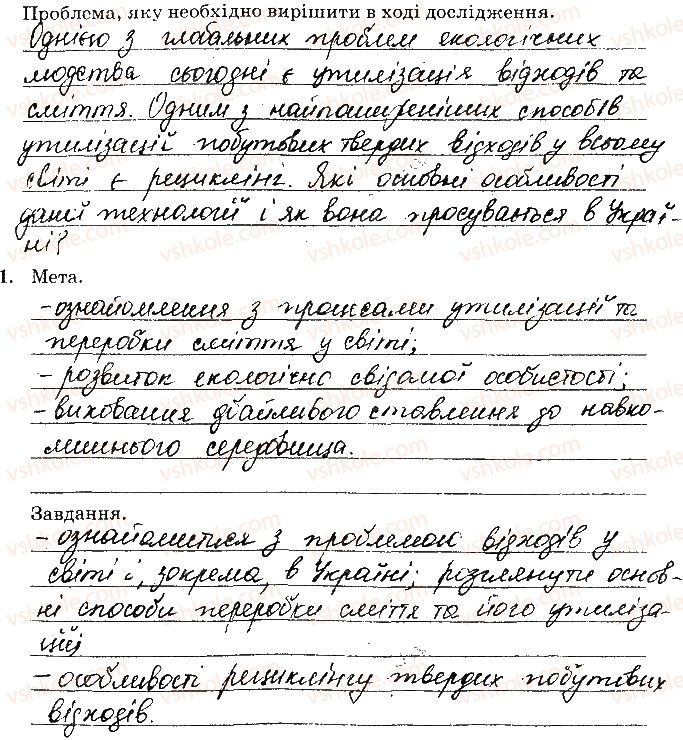 Проблема, яку необхідно вирішити в ході дослідження.
Однією з глобальних проблем екологічних
людства сьогодні є утилізація відходів та
сміття. Одним з найпоширеніших способів
утилізації побутових твердих відходів у всьому
світі є рециклінг. Які основні особливості
даної технології і як вона просувається в Украї-
ні?
1. Мета.
- ознайомлення з процесами утилізації та
переробки сміття у світі;
- розвиток екологічно свідомої особистості;
- виховання дбайливого ставлення до навко-
лишнього середовища.
Завдання.
- ознайомитися з проблемою відходів у
світі і, зокрема, в Україні; розглянути основ-
ні способи переробки сміття та його утиліза-
ції
- особливості рециклінгу твердих побутових
відходів.